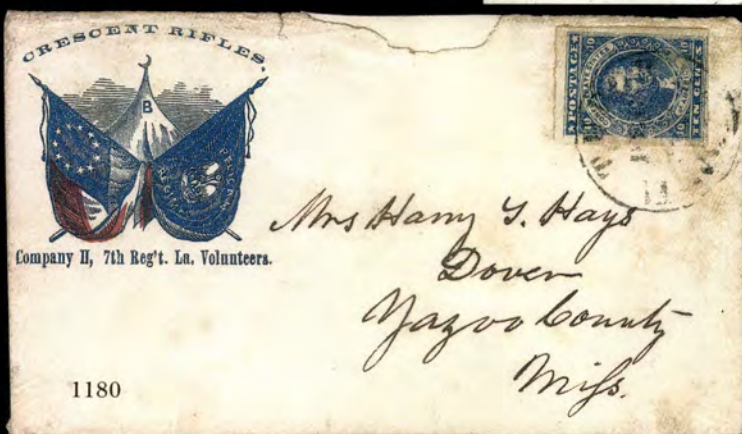 CRESCENT RIFLES.
B
Company H, 7th Reg't. La. Volunteers.
POSTAGE
TEN CENTS
10
10
10
Mrs Harry T. Hays
Dover
Yazoo County
Miſs.
1180